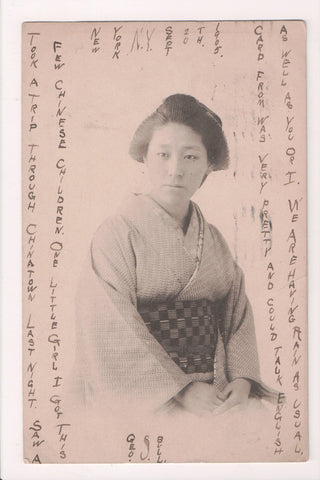 NEW YORK N.Y. SEPT 20TH. 1905.
TOOK A TRIP THROUGH CHINATOWN LAST NIGHT. SAW A
FEW CHINESE CHILDREN. ONE LITTLE GIRL I GOT THIS
CARD FROM WAS VERY PRETTY AND COULD TALK ENGLISH
AS WELL AS YOU OR I. WE ARE HAVING RAIN AS USUAL.
GEO. S. BULL.